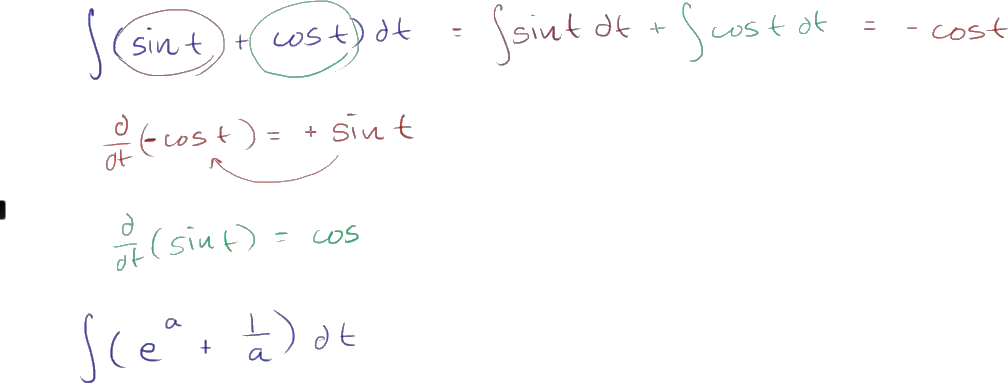 ∫(sin t + cos t) dt = ∫sin t dt + ∫cos t dt = - cos t
d/dt (-cos t) = + sin t
d/dt (sin t) = cos
∫(e^a + 1/a) dt